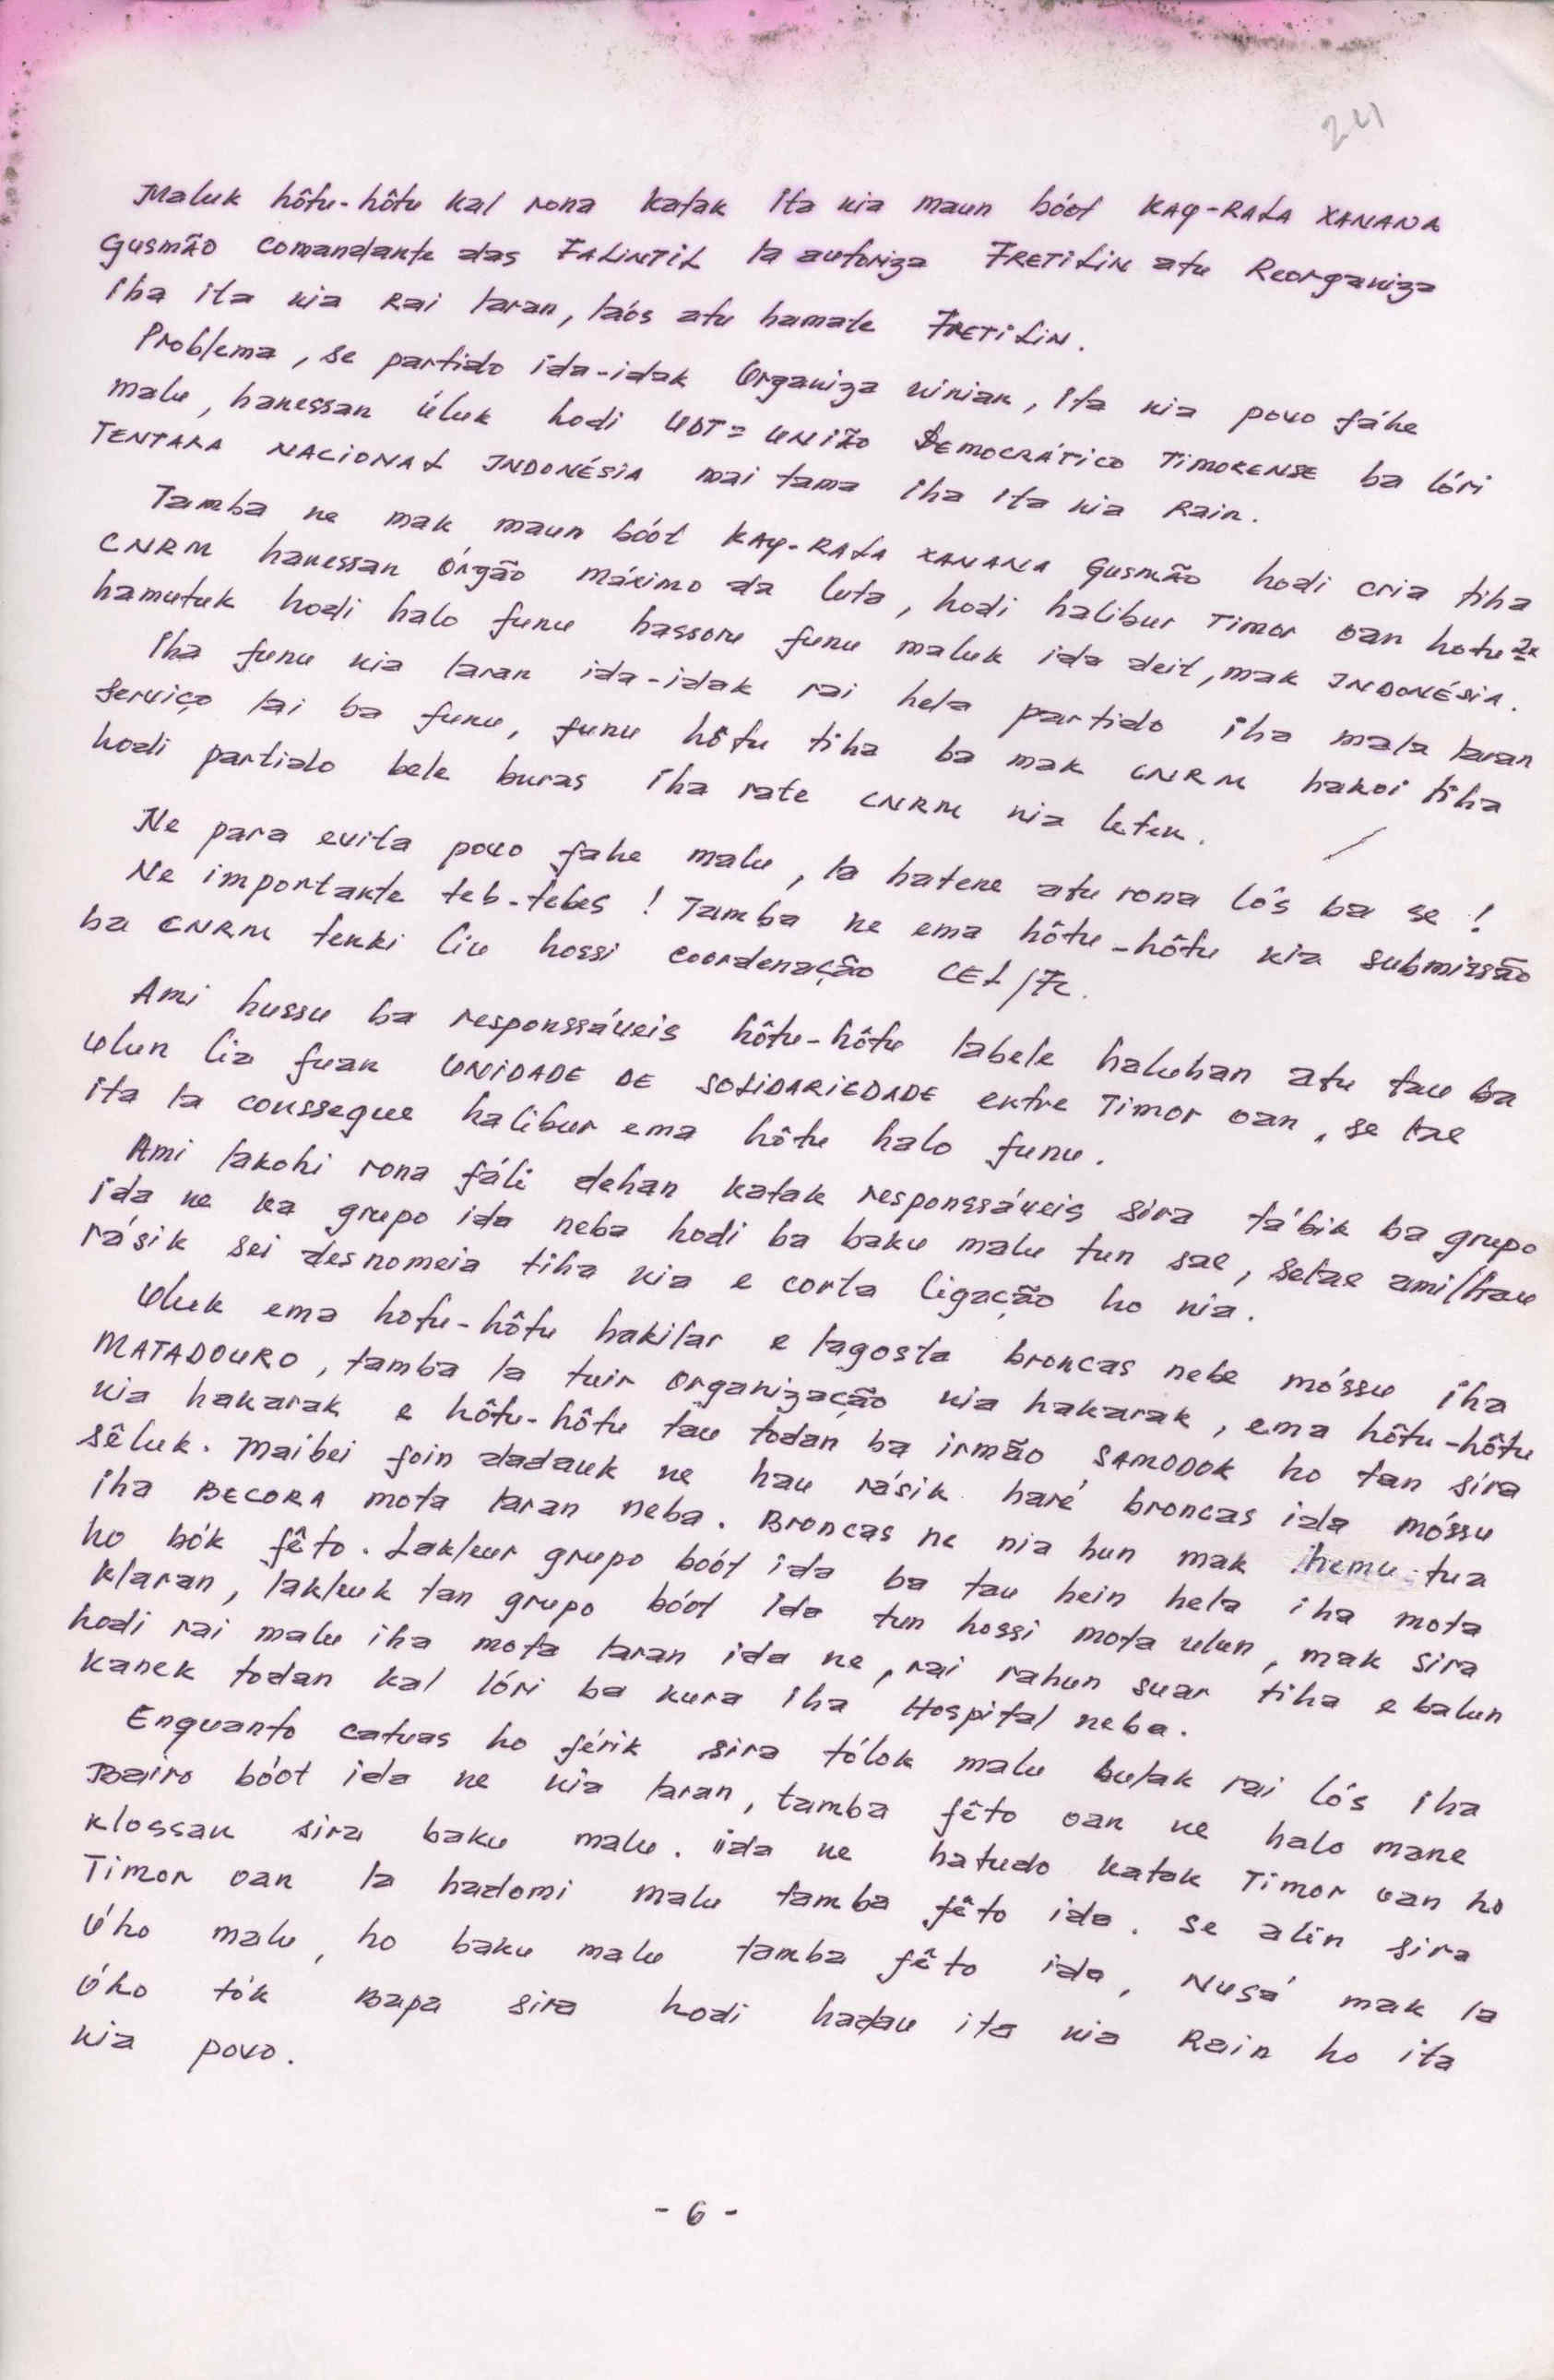 241
Maluk hôtu-hôtu kal rona katak ita nia maun bóot KAY-RALA XANANA
Gusmão comandante das FALINTIL la autoriza FRETILIN atu Reorganiza
iha ita nia Rai laran, laós atu hamate FRETILIN.
Problema, se partido ida-idak Organiza ninian, ita nia povo fáhe
malu, hanessan úluk hodi UDT = UNIÃO DEMOCRÁTICO TIMORENSE ba lóri
TENTARA NACIONAL INDONÉSIA mai tama iha ita nia Rain.
Tamba ne mak maun bóot KAY-RALA XANANA Gusmão hodi cria tiha
CNRM hanessan Órgão Máximo da luta, hodi halibur Timor oan hotu 2x
hamutuk hodi halo funu hassoru funu maluk ida deit, mak INDONÉSIA.
Iha funu nia laran ida-idak rai hela partido iha mala laran
serviço lai ba funu, funu hôtu tiha ba mak CNRM hakoi tiha
hodi partido bele buras iha rate CNRM nia leten.
Ne para evita povo fahe malu, la hatene atu rona lôs ba se !
Ne importante teb-tebes ! Tamba ne ema hôtu-hôtu nia submissão
ba CNRM tenki liu hossi coordenação CEL/FC.
Ami hussu ba responssáveis hôtu-hôtu labele haluhan atu tau ba
ulun lia fuan UNIDADE DE SOLIDARIEDADE entre Timor oan, se lae
ita la conssegue halibur ema hôtu halo funu.
Ami lakohi rona fáli dehan katak responssáveis sira tá'bik ba grupo
ida ne ka grupo ida neba hodi ba baku malu tun sae, selae ami/hau
rásik sei desnomeia tiha nia e corta ligação ho nia.
Uluk ema hotu-hôtu hakilar e lagosta broncas nebe móssu iha
MATADOURO, tamba la tuir organização nia hakarak, ema hôtu-hôtu
nia hakarak e hôtu-hôtu tau todan ba irmão SAMODOK ho tan sira
sêluk. Maibei foin dadauk ne hau rásik haré broncas ida móssu
iha BECORA mota laran neba. Broncas ne nia hun mak hemu tua
ho bók fêto. Lakleur grupo boót ida ba tau hein hela iha mota
klaran, lakluuk tan grupo bóot ida tun hossi mota ulun, mak sira
hodi rai malu iha mota laran ida ne, rai rahun suar tiha e balun
kanek todan kal lóri ba kura iha Hospital neba.
Enquanto catuas ho férik sira tólok malu butak rai lós iha
Bairo bóot ida ne nia laran, tamba fêto oan ne halo mane
klossan sira baku malu. iida ne hatudo katak Timor oan ho
Timor oan la hadomi malu tamba fêto ida. Se alin sira
óho malu, ho baku malu tamba fêto ida, Nusá mak la
óho tók Bapa sira hodi hadau ita nia Rain ho ita
nia povo.
- 6 -